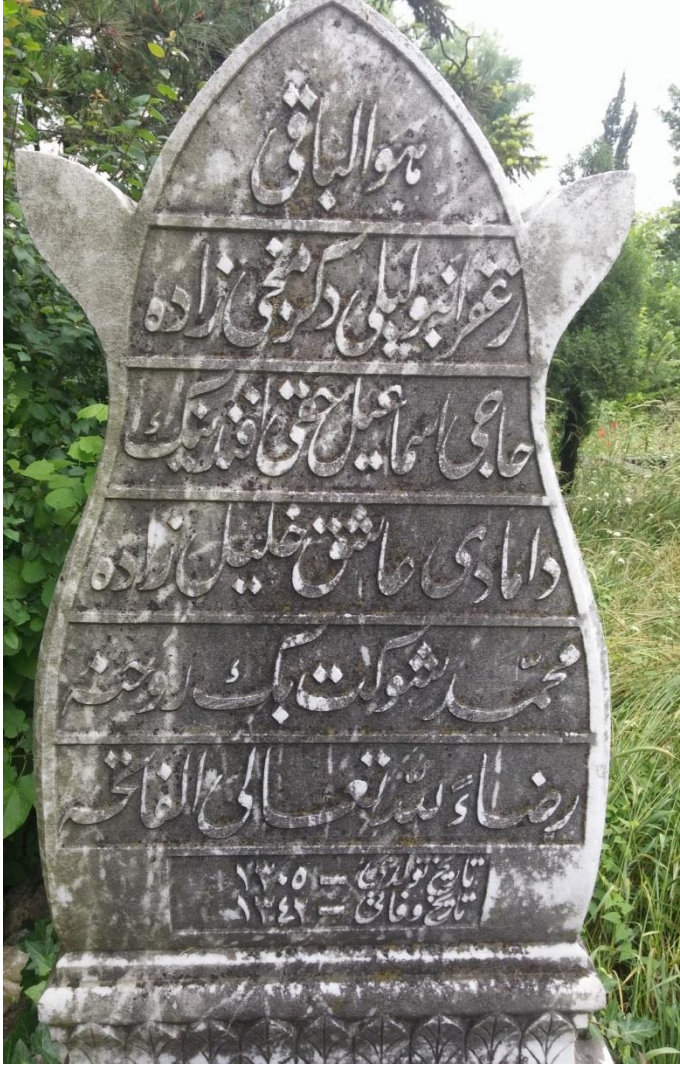 هو الباقی
زعفرانبولیلی دکرمنجی زاده
حاجی اسماعیل حقی افندینك
دامادی عاشق خلیل زاده
محمد شوکت بك روحنه
رضاءً لله تعالی الفاتحه
تاریخ تولدی — ١٣٠٥
تاریخ وفاتی — ١٣٤٢